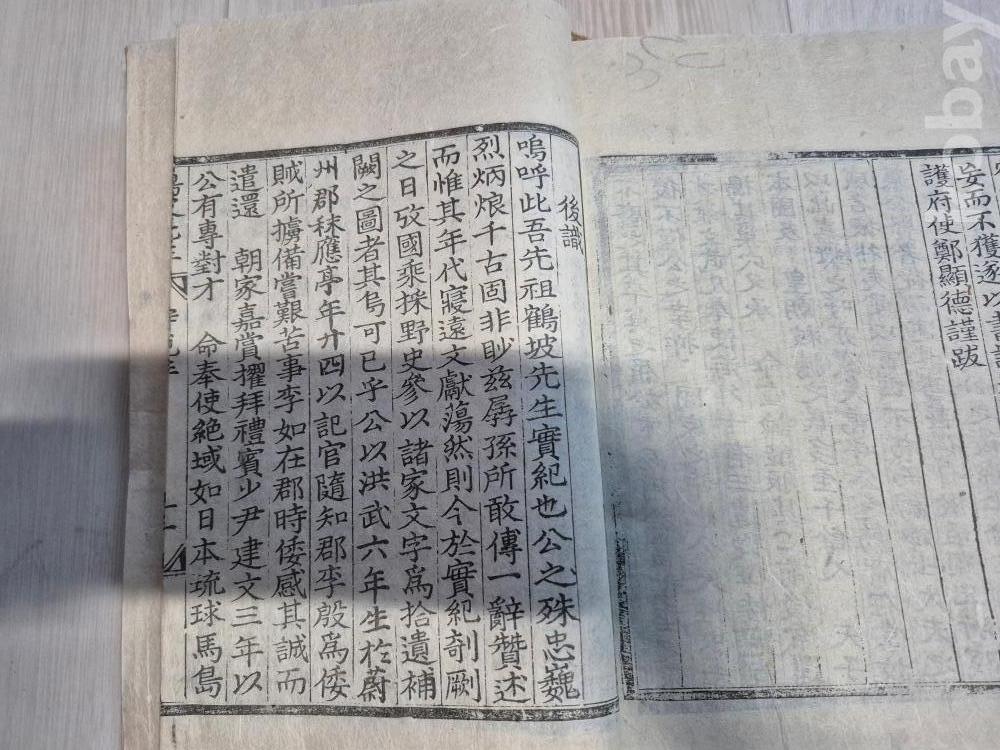 妄而不獲遂以書
護府使鄭顯德謹跋
後識
嗚呼此吾先祖鶴坡先生實紀也公之殊忠巍
烈炳烺千古固非眇玆孱孫所敢傳一辭贊述
而惟其年代寢遠文獻蕩然則今於實紀剞劂
之日攷國乘採野史參以諸家文字爲拾遺補
闕之圖者其烏可已乎公以洪武六年生於蔚
州郡秣應亭年廿四以記官隨知郡李殷爲倭
賊所擄備嘗艱苦事李如在郡時倭感其誠而
遣還 朝家嘉賞擢拜禮賓少尹建文三年以
公有專對才 命奉使絶域如日本琉球馬島
bay